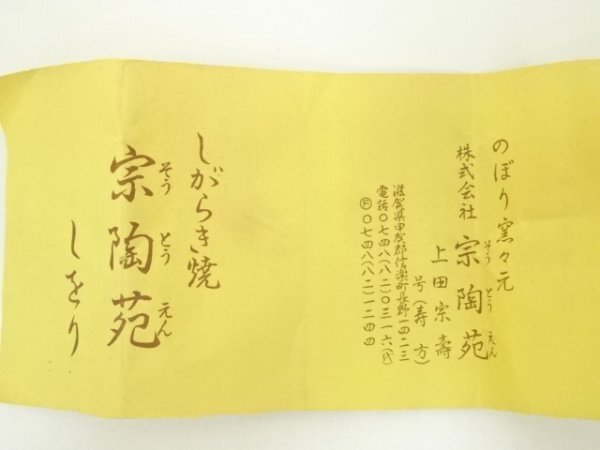 のぼり窯々元
株式会社 宗陶苑
そう とう えん
上田宗壽
号(寿方)
滋賀県甲賀郡信楽町長野一四二三
電話〇七四八(八二)〇三一六(代)
〇七四八(八二)一二四四
しがらき焼
宗陶苑
そう とう えん
しをり